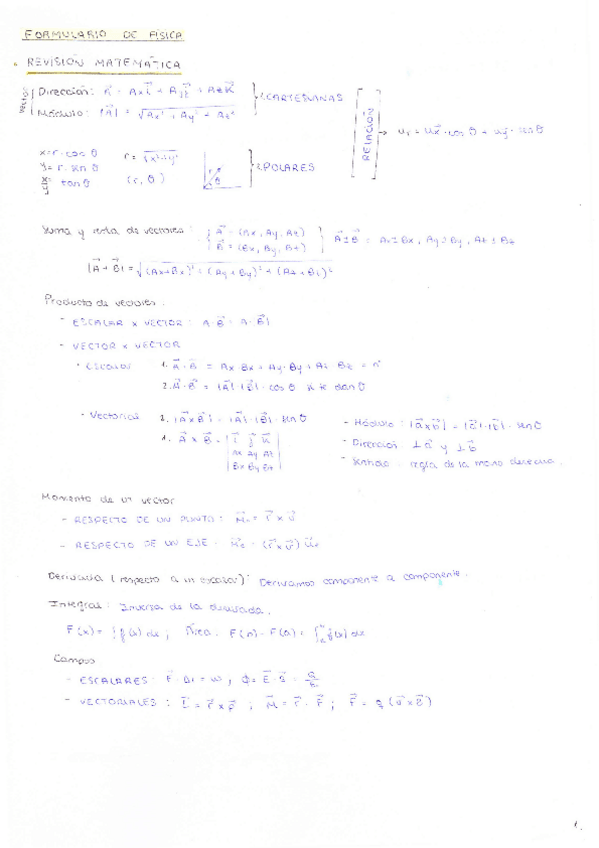 FORMULARIO DE FÍSICA
• REVISIÓN MATEMÁTICA
VECTOR { Dirección: A⃗ = Ax i⃗ + Ay j⃗ + Az k⃗ } CARTESIANAS
Módulo: |A⃗| = √Ax² + Ay² + Az²
[RELACIÓN] → · cos θ + · sen θ
x = r · cos θ r = √x² + y²
y = r · sen θ (r, θ) } POLARES
tan θ
Suma y resta de vectores: { A⃗ = (Ax, Ay, Az)
B⃗ = (Bx, By, Bz) } A⃗ ± B⃗ = Ax ± Bx, Ay ± By, Az ± Bz
|A⃗ + B⃗| = √(Ax+Bx)² + (Ay+By)² + (Az+Bz)²
Producto de vectores:
- ESCALAR x VECTOR:
- VECTOR x VECTOR
- Escalar 1. A⃗ · B⃗ = Ax Bx + Ay · By + Az · Bz = nº
2. A⃗ · B⃗ = |A⃗| · |B⃗| · cos θ dan θ
- Vectorial 2. |A⃗ x B⃗| = |A⃗| · |B⃗| · sen θ - Módulo: |a⃗ x b⃗| = · sen θ
1. A⃗ x B⃗ = | i⃗ j⃗ k⃗ - Dirección: ⊥ a⃗ y ⊥ b⃗
Ax Ay Az
Bx By Bz | - Sentido: regla de la mano derecha.
Momento de un vector
- RESPECTO DE UN PUNTO: M⃗o = r⃗ x v⃗
- RESPECTO DE UN EJE: = (r⃗ x v⃗)
Derivada (respecto a un escalar): Derivamos componente a componente.
Integral: Inversa de la derivada.
F(x) = ∫ f(x) dx ; Área: = ∫ f(x) dx
Campos
- ESCALARES: = W, Φ = E⃗ · S⃗ =
- VECTORIALES: L⃗ = r⃗ x p⃗ ; M⃗ = r⃗ · F⃗ ; F⃗ = q (v⃗ x B⃗)
1.